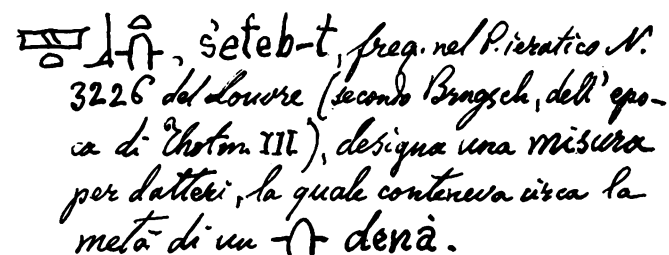 , śeteb-t, freq. nel P. ieratico N.
3226 del Louvre (secondo Brugsch, dell' epo-
ca di Thotm. III), designa una misura
per datteri, la quale conteneva circa la
metà di un denà.